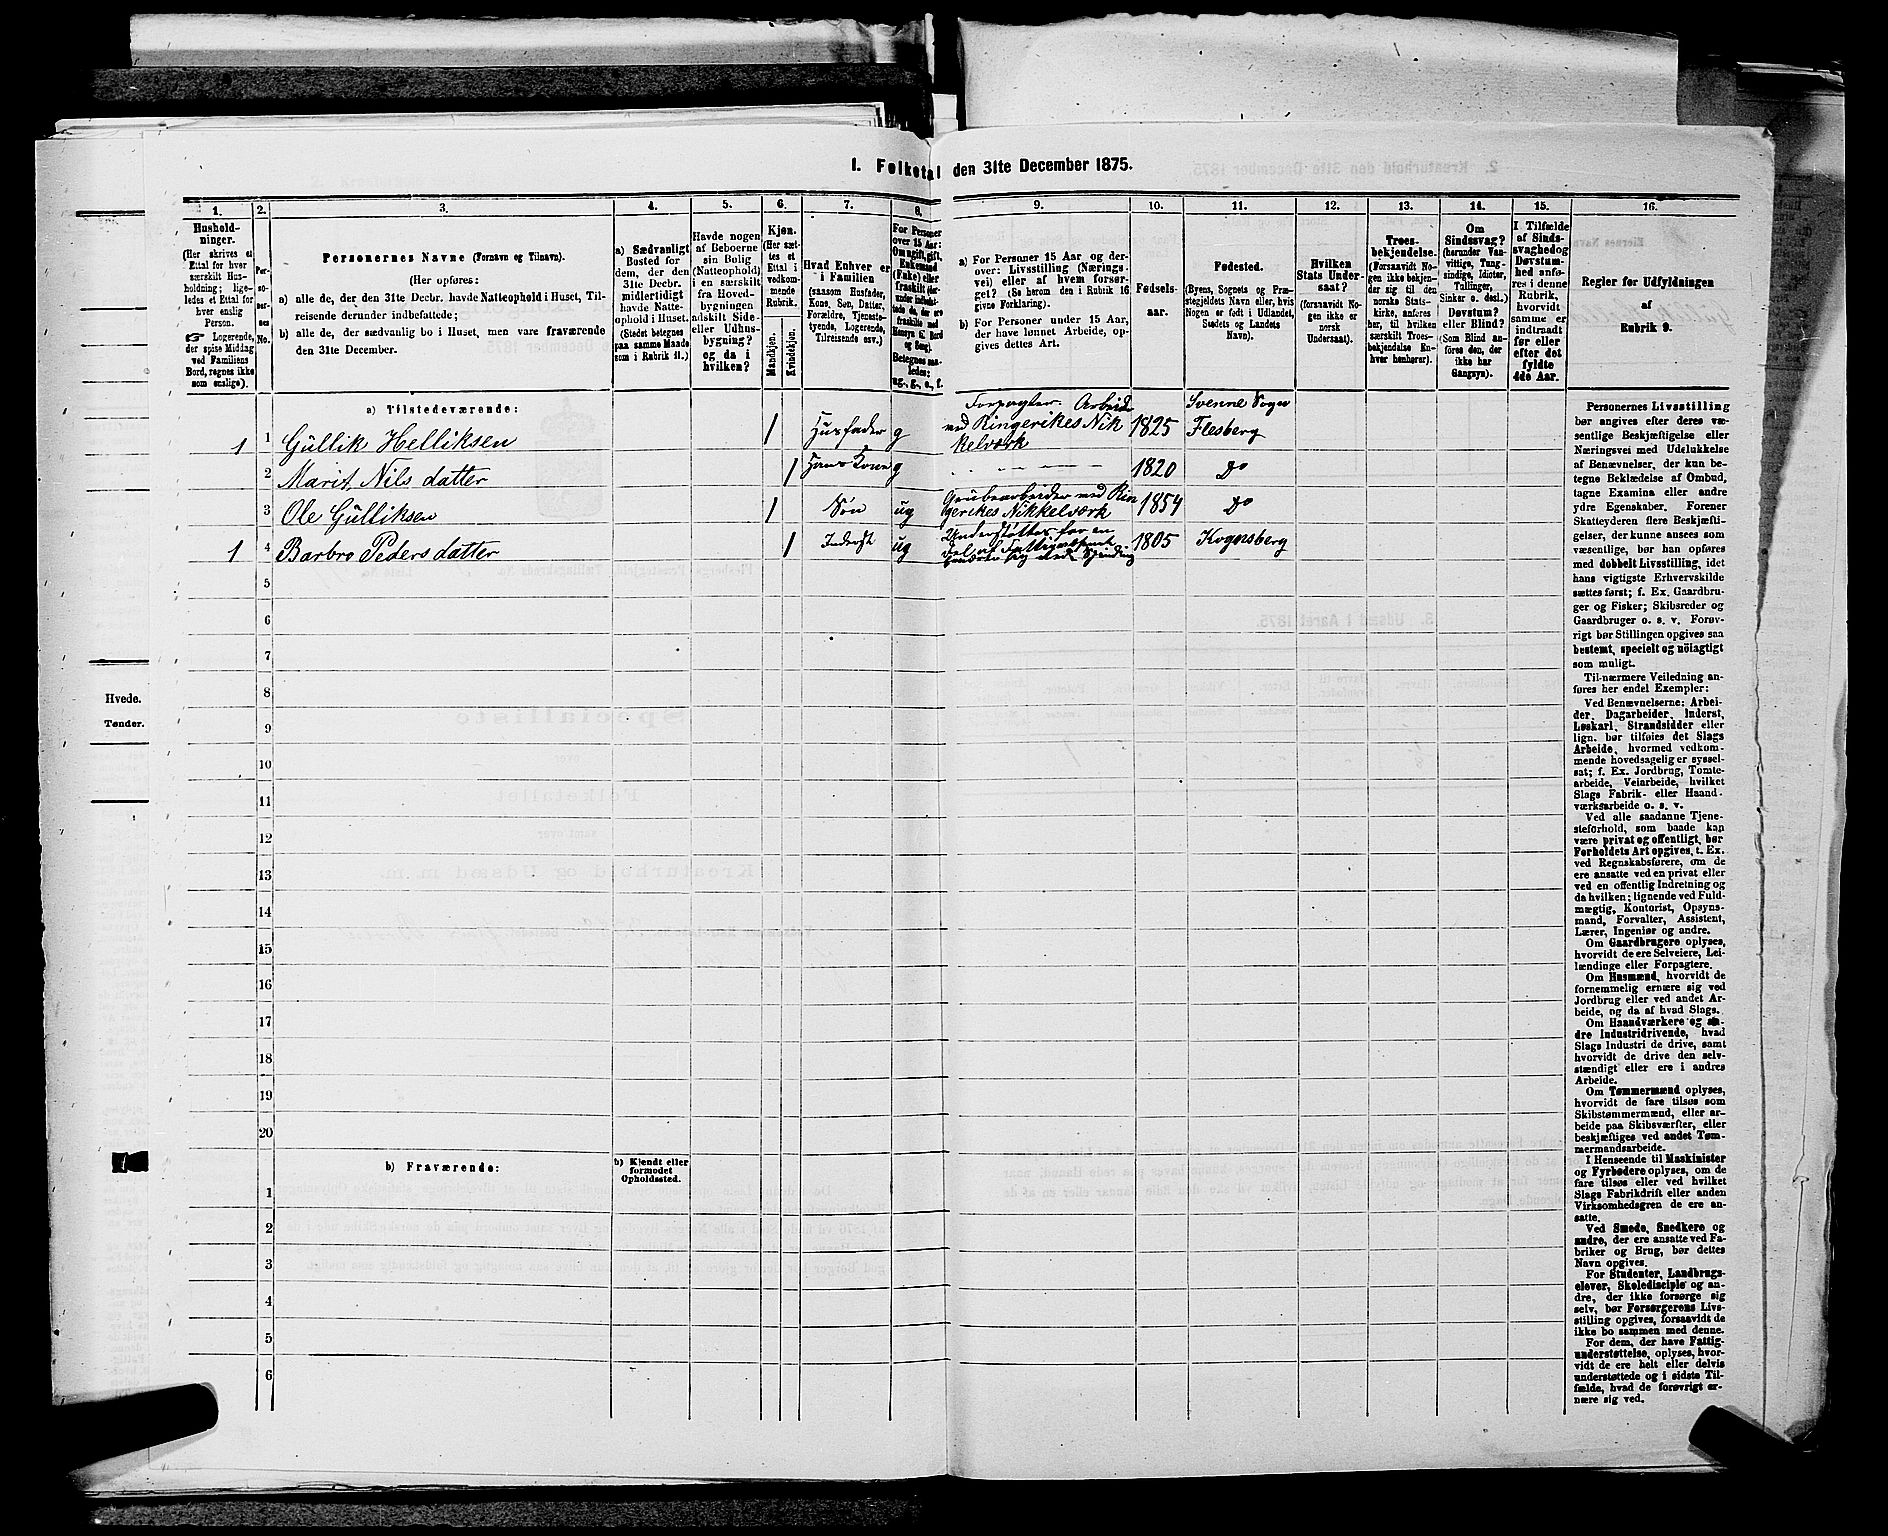 1. Folketal den 31te December 1875.
1.
2.
3.
4.
5.
6.
7.
8.
9.
10.
11.
12.
13.
14.
15.
16.
Hushold-
ninger.
(Her skrives et
Ettal for hver
særskilt Hus-
holdning; lige-
ledes et Ettal for
hver enslig
Person.
☞ Logerende,
der spise Middag
ved Familiens
Bord, regnes ikke
som enslige).
Per-
so-
ner-
nes
No.
Personernes Navne (Fornavn og Tilnavn).
(Her opføres:
a) alle de, der den 31te Decbr. havde Natteophold i Huset, Til-
reisende derunder indbefattede;
b) alle de, der sædvanlig bo i Huset, men vare fraværende
den 31te December.
a) Sædvanligt
Bosted for
dem, der den
31te Decbr.
midlertidigt
havde Natte-
ophold i Huset.
(Stedet betegnes
paa samme Maade
som i Rubrik 11.)
Havde nogen
af Beboerne
sin Bolig
(Natteophold)
i en særskilt
fra Hoved-
bygningen
adskilt Side-
eller Udhus-
bygning?
og da i
hvilken?
Kjøn.
(Her sæt-
tes et
Ettal i
vedkom-
mende
Rubrik.
Mandkjøn.
Kvindekjøn.
Hvad Enhver er
i Familien
(saasom Husfader,
Kone, Søn, Datter,
Forældre, Tjeneste-
tyende, Logerende,
Tilreisende osv.)
For Personer
over 15 Aar:
Om ugift, gift,
Enkemand
(Enke) eller
fraskilt
Betegnes saa-
ledes:
ug., g., e., f.
a) For Personer 15 Aar og der-
over: Livsstilling (Nærings-
vei) eller af hvem forsør-
get? (Se herom den i Rubrik 16
givne Forklaring).
b) For Personer under 15 Aar,
der have lønnet Arbeide, op-
gives dettes Art.
Fødsels-
aar.
Fødested.
(Byens, Sognets og Præ-
stegjeldets Navn eller, hvis
Nogen er født i Udlandet,
Stedets og Landets
Navn).
Hvilken
Stats Under-
saat?
(forsaavidt No-
gen ikke er
norsk
Undersaat).
Troes-
bekjendelse.
(Forsaavidt No-
gen ikke bekjen-
der sig til den
norske Stats-
kirke, anføres
her, til hvilken
særskilt Troes-
bekjendelse En-
hver henhører).
Om
Sindssvag?
(herunder Van-
vittige, Tung-
sindige, Idioter,
Tullinger,
Sinker o. desl.)
Døvstum?
eller Blind?
(Som Blind an-
føres den, der
ikke har
Gangsyn).
I Tilfælde
af Sinds-
svaghed og
Døvstum-
hed anfø-
res i denne
Rubrik,
hvorvidt
samme er
indtraadt
før eller
efter det
fyldte
4de Aar.
Regler for Udfyldningen
af
Rubrik 9.
a) Tilstedeværende:
1 1 Gullik Helliksen 1 Husfader g Forpagter. Arbeide ved Ringerikes Nik kelværk 1825 Svenne Sogn Flesberg
2 Marit Nils datter 1 Hans Kone g 1820 Do
3 Ole Gulliksen 1 Søn ug Grubearbeider ved Rin gerikes Nikkelværk 1854 Do
1 4 Barbro Peders datter 1 Inderst ug Understøttes for en Del af Fattigvæsenet 1805 Kognsberg
5
6
7
8
9
10
11
12
13
14
15
16
17
18
19
20
b) Fraværende:
b) Kjendt eller
formodet
Opholdssted.
1
2
3
4
5
6
Personernes Livsstilling
bør angives efter deres væ-
sentlige Beskjæftigelse eller
Næringsvei med Udelukkelse
af Benævnelser, der kun be-
tegne Beklædelse af Ombud,
tagne Examina eller andre
ydre Egenskaber. Forener
Skatteyderen flere Beskjæfti-
gelser, der kunne ansees som
væsentlige, bør han opføres
med dobbelt Livsstilling, idet
hans vigtigste Erhvervskilde
sættes først; f. Ex. Gaardbru-
ger og Fisker; Skibsreder og
Gaardbruger o. s. v. Forøv-
rigt bør Stillingen opgives saa
bestemt, specielt og nöiagtigt
som muligt.
Til nærmere Veiledning an-
føres her endel Exempler:
Ved Benævnelserne: Arbei-
der, Dagarbeider, Inderst,
Løskarl, Strandsidder eller
lign. bør tilføies det Slags
Arbeide, hvormed vedkom-
mende hovedsagelig er syssel-
sat; f. Ex. Jordbrug, Tomte-
arbeide, Veiarbeide, hvilket
Slags Fabrik- eller Haand-
værksarbeide o. s. v.
Ved alle saadanne Tjene-
steforhold, som baade kan
være privat og offentligt, bør
Forholdets Art opgives, t. Ex.
ved Regnskabsførere, om de
ere ansatte ved en privat eller
ved en offentlig Indretning og
da hvilken; lignende ved Fuld-
mægtig, Kontorist, Opsyns-
mand, Forvalter, Assistent,
Lærer, Ingeniør og andre.
Om Gaardbrugere oplyses,
hvorvidt de ere Selveiere, Lei-
lændinge eller Forpagtere.
Om Husmænd, hvorvidt de
fornemmelig ernære sig ved
Jordbrug eller ved andet Ar-
beide, og da af hvad Slags.
Om Haandværkere og an-
dre Industridrivende, hvad
Slags Industri de drive, samt
hvorvidt de drive den selv-
stændigt eller ere i andres
Arbeide.
Om Tømmermænd oplyses,
hvorvidt de fare tilsøs som
Skibstømmermænd, eller ar-
beide paa Skibsværfter, eller
beskjæftiges ved andet Tøm-
mermandsarbeide.
I Henseende til Maskinister
og Fyrbødere oplyses, om de
fare tilsøs eller ved hvilket
Slags Fabrikdrift eller anden
Virksomhedsgren de ere an-
satte.
Ved Smede, Snedkere og
andre, der ere ansatte ved Fa-
briker og Brug, bør dettes
Navn opgives.
For Studenter, Landbrugs-
elever, Skoledisciple og an-
dre, der ikke forsørge sig
selv, bør Forsørgerens Livs-
stilling opgives, forsaavidt de
ikke bo sammen med denne.
For dem, der have Fattig-
understøttelse, oplyses, hvor-
vidt de ere helt eller delvis
understøttede og i sidste Til-
fælde, hvad de forøvrigt er-
nære sig ved.
Hvede.
Tønder.